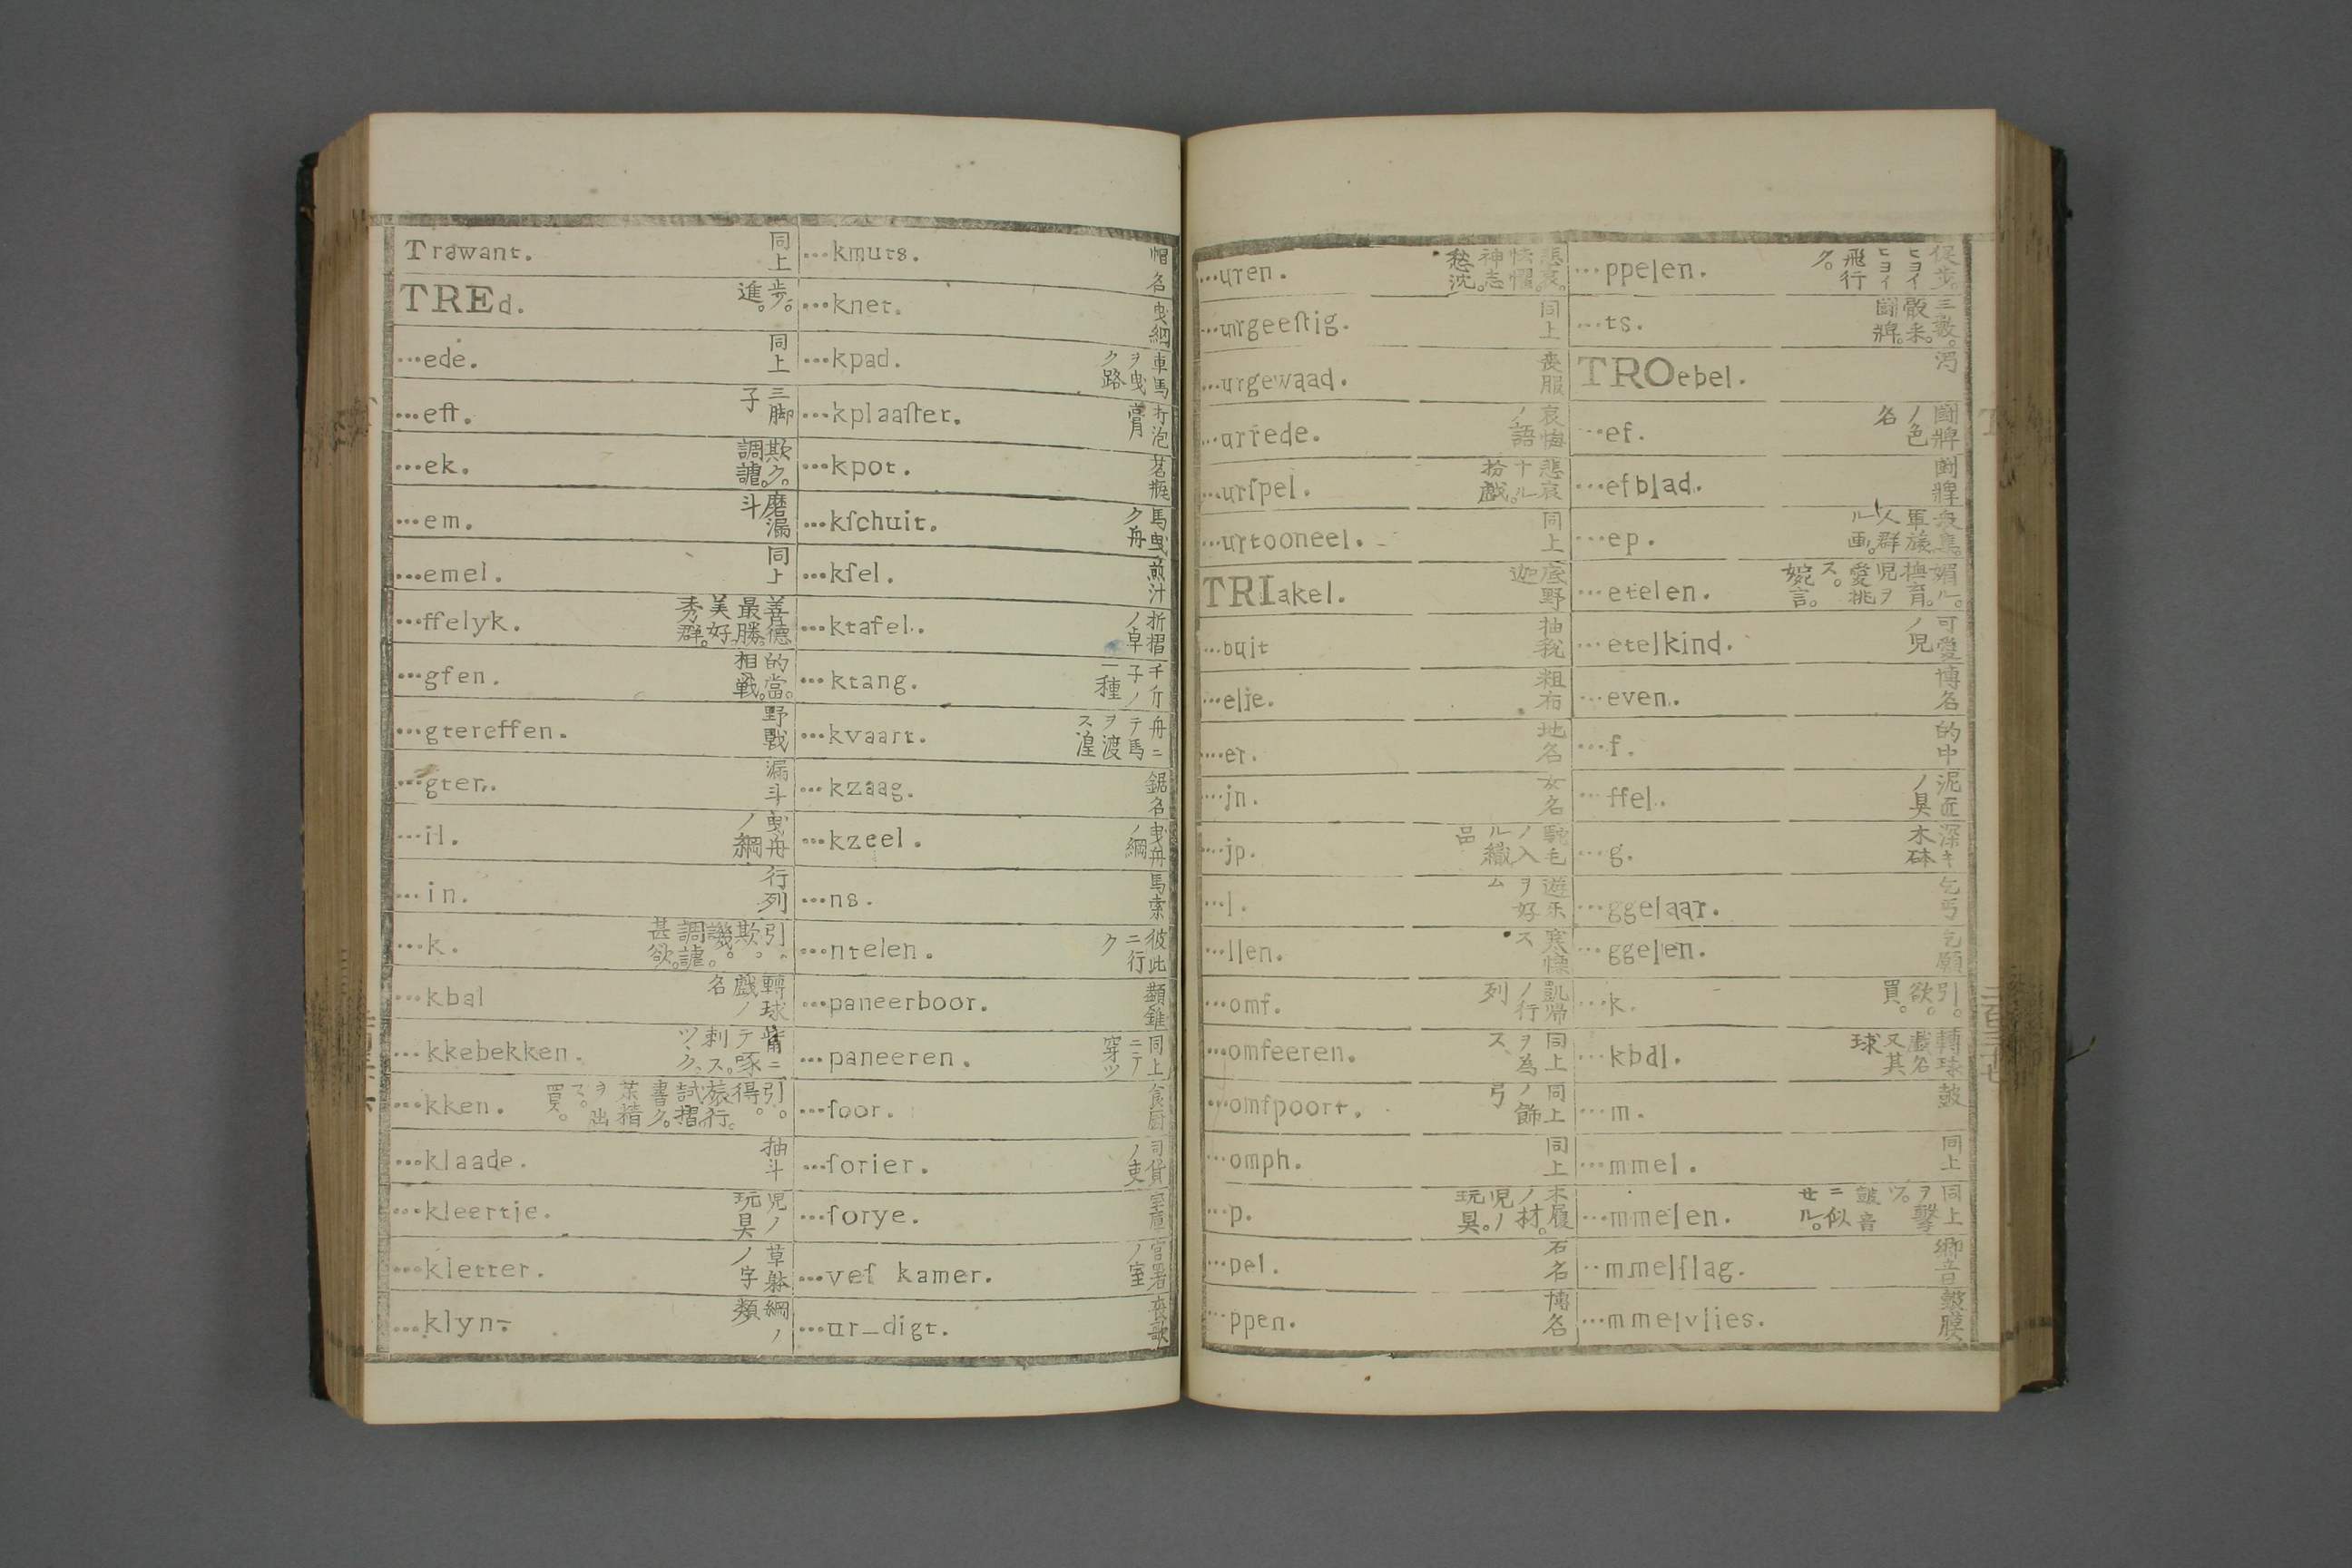 Trawant. 同上
TREd. 歩。進。
...ede. 同上
...eſt. 三脚子
...ek. 欺ク。調謔。
...em. 磨漏斗
...emel. 同上
...ffelyk. 善德最勝。美好。秀群。
...gfen. 的當。相戰。
...gtereffen. 野戰
...gter.. 漏斗
...il. 曳舟ノ綱
...in. 行列
...k. 引。欺。譏。調謔。甚欲。
...kbal 轉球戲ノ名
...kkebekken. 觜ニテ啄ス。刺ツヽク。
...kken. 引。得。旅行。試。摺書ク。茶精ヲ出ス。買。
...klaade. 抽斗
...kleertje. 児ノ玩具
...kletter. 草躰ノ字
...klyn- 綱ノ類
...kmuts. 帽名
...knet. 曳綱
...kpad. 車馬ヲ曳ク路
...kplaaſter. 打泡膏
...kpot. 茗瓶
...kſchuit. 馬曳ク舟
...kſel. 煎汁
...ktafel.. 折摺ノ卓
...ktang. 千斤子ノ一種
...kvaart. 舟ニテ馬ヲ渡ス湟
...kzaag. 鋸名
...kzeel. 曳舟ノ綱
...ns. 馬索
...ntelen. 彼此ニ行ク
...paneerboor. 顱錐
...paneeren. 同上ニテ穿ツ
...ſoor. 食厨
...ſorier. 司貨ノ吏
...ſorye. 室庫
...veſ kamer. 官署ノ室
...ur_digt. 喪歌
...uren. 悲哀。怯懼。神志愁沈。
...urgeeſtig. 同上
...urgewaad. 喪服
...urrede. 哀悔ノ語
...urſpel. 悲哀ナル扮戲。
...urtooneel. 同上
TRIakel. 底野迦
...buit
...elje. 粗布
...er. 地名
...jn. 女名
...jp. 駝毛ノ入ル織品
...l. 遊乐ヲ好ム
...llen. 寒慄ス
...omf. 凱帰ノ行列
...omfeeren. 同上ヲ為ス
...omfpoort. 同上ノ飾弓
...omph. 同上
...p. 木履ノ材。児ノ玩具。
...pel. 石名
...ppen. 博名
...ppelen. 徒歩。ヒヨイヒヨイ飛行ク。
...ts. 三数。骰釆。鬪牌。
TROebel. 濁
...ef. 鬪牌ノ色名
...efblad. 鬪牌
...ep. 衆集。軍旅。人群ル画。
...etelen. 媚ル。撫育。児ヲ愛ス。挑婉言。
...etelkind. 可愛ノ児
...even. 博名
...f. 的中
...ffel. 泥匠ノ具
...g. 深キ木砵
...ggelaar. 乞丐
...ggelen. 乞願
...k. 引。欲。買。
...kbal. 轉球戲名又其球
...m. 鼓
...mmel. 同上
...mmelen. 同上ヲ擊ツ。鼓音ニ似セル。
...mmelſlag. 響音
...mmelvlies. 鼓膜